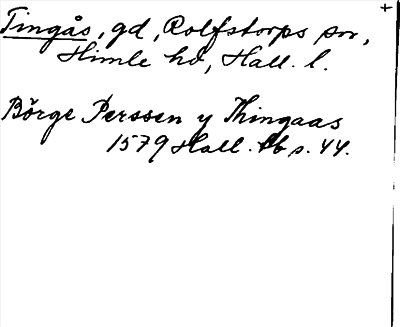 +
Tingås, gd, Rolfstorps sn,
Himle hd, Hall. l.
Börge Perssen y Thingaas
1579 Hall. lb s. 44.